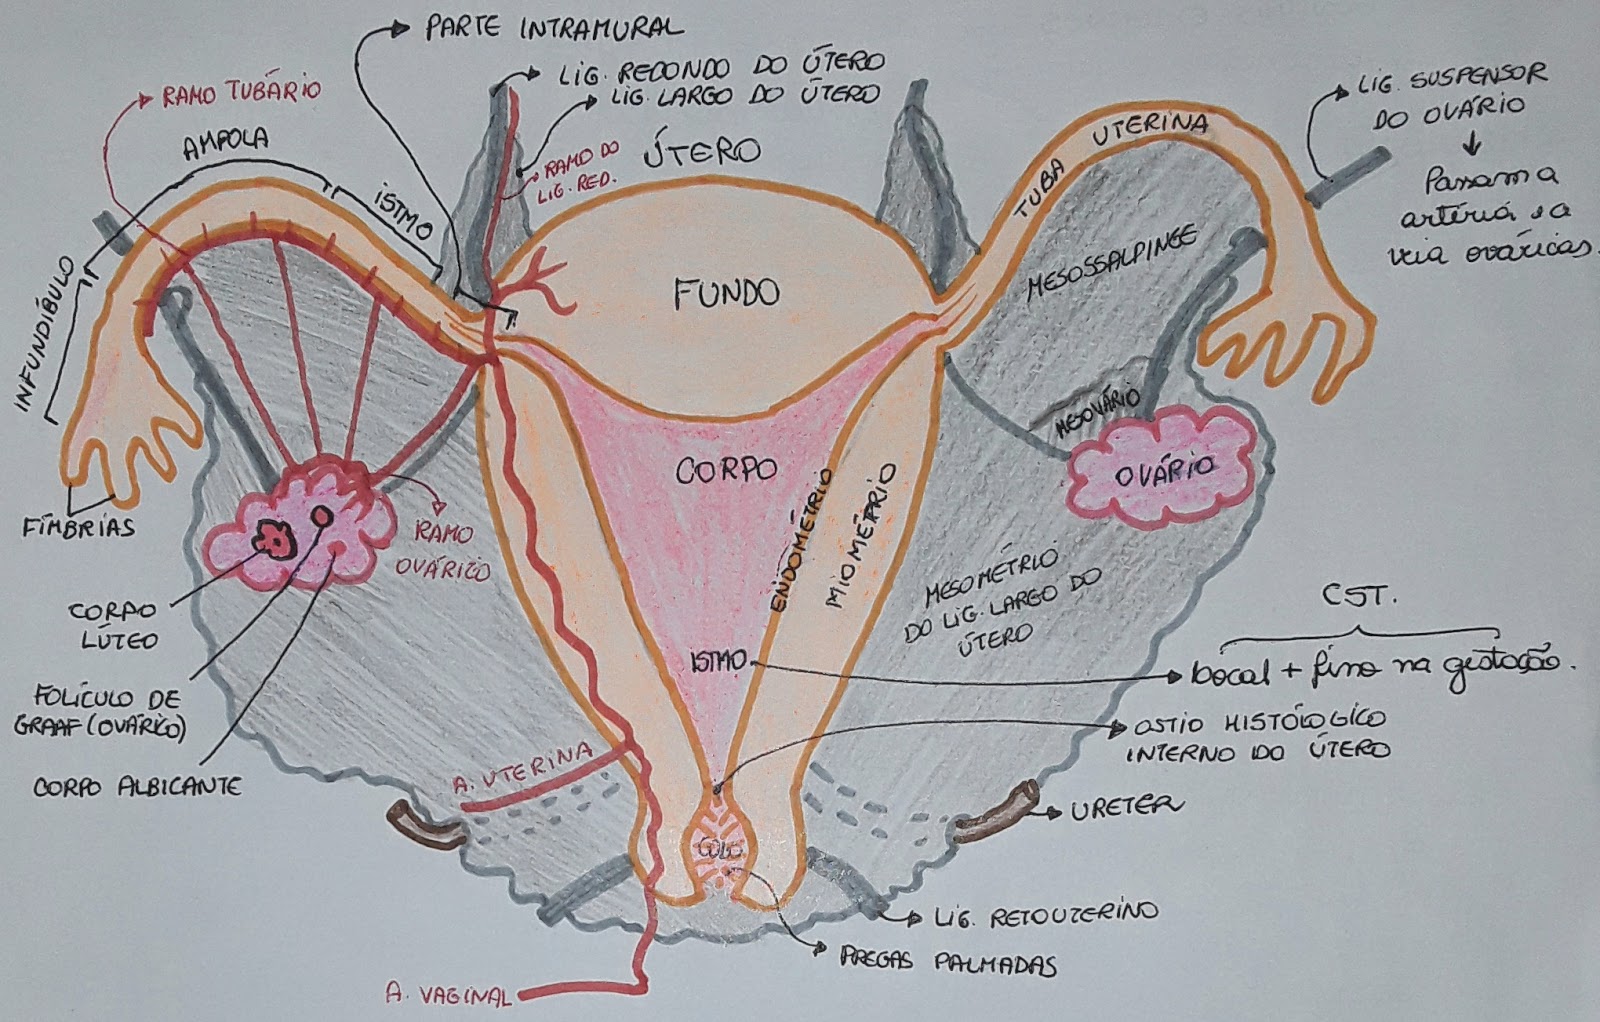 PARTE INTRAMURAL
LIG. REDONDO DO ÚTERO
LIG. LARGO DO ÚTERO
RAMO TUBÁRIO
AMPOLA
ISTMO
INFUNDÍBULO
RAMO DO
LIG. RED.
ÚTERO
TUBA UTERINA
LIG. SUSPENSOR
DO OVÁRIO
Passam a
artéria e a
veia ováricas.
MESOSSALPINGE
FUNDO
MESOVÁRIO
OVÁRIO
CORPO
ENDOMÉTRIO
MIOMÉTRIO
FÍMBRIAS
RAMO
OVÁRICO
CORPO
LÚTEO
FOLÍCULO DE
GRAAF (OVÁRICO)
CORPO ALBICANTE
MESOMÉTRIO
DO LIG. LARGO DO
ÚTERO
CST.
ISTMO
local + fino na gestação.
OSTIO HISTÓLOGICO
INTERNO DO ÚTERO
A. UTERINA
URETER
COLO
LIG. RETOUTERINO
PREGAS PALMADAS
A. VAGINAL